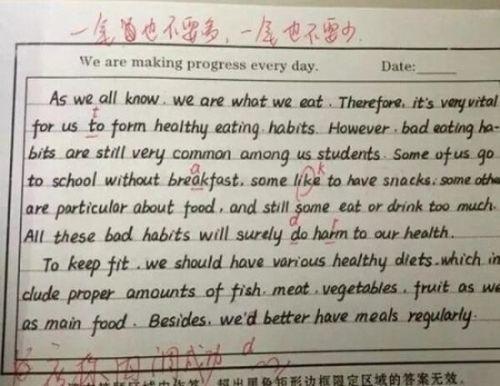 一尾首也不要多，一尾也不要少.
We are making progress every day. Date:
As we all know, we are what we eat. Therefore, it's very vital
t
for us to form healthy eating habits. However, bad eating ha-
bits are still very common among us students. Some of us go
a k
to school without breakfast, some like to have snacks, some othe
are particular about food, and still some eat or drink too much.
d r
All these bad habits will surely do harm to our health.
To keep fit, we should have various healthy diets, which in
clude proper amounts of fish, meat, vegetables, fruit as we
as main food. Besides, we'd better have meals regularly.
d
超出黑色矩形边框限定区域的答案无效。